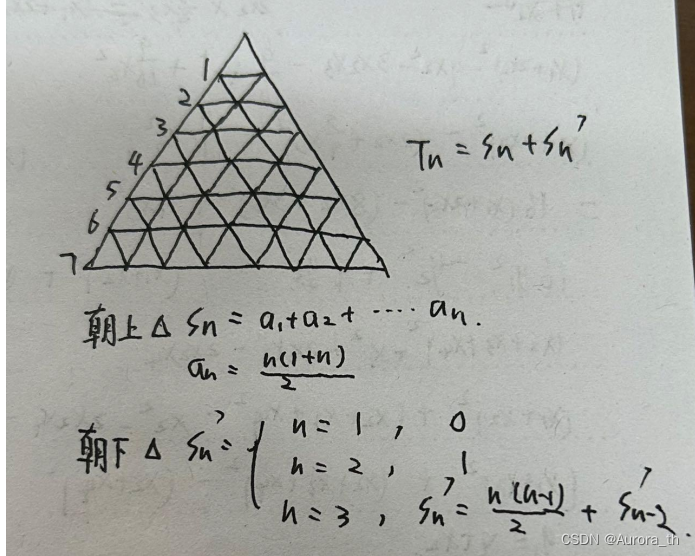 1
2
3
4
5
6
7
Tn = Sn + Sn'
朝上 Δ Sn = a1 + a2 + ···· an.
an = n(1+n)/2
朝下 Δ Sn' = { n = 1 , 0
n = 2 , 1
n = 3 , Sn' = n(n-1)/2 + Sn-2'
CSDN @Aurora_th